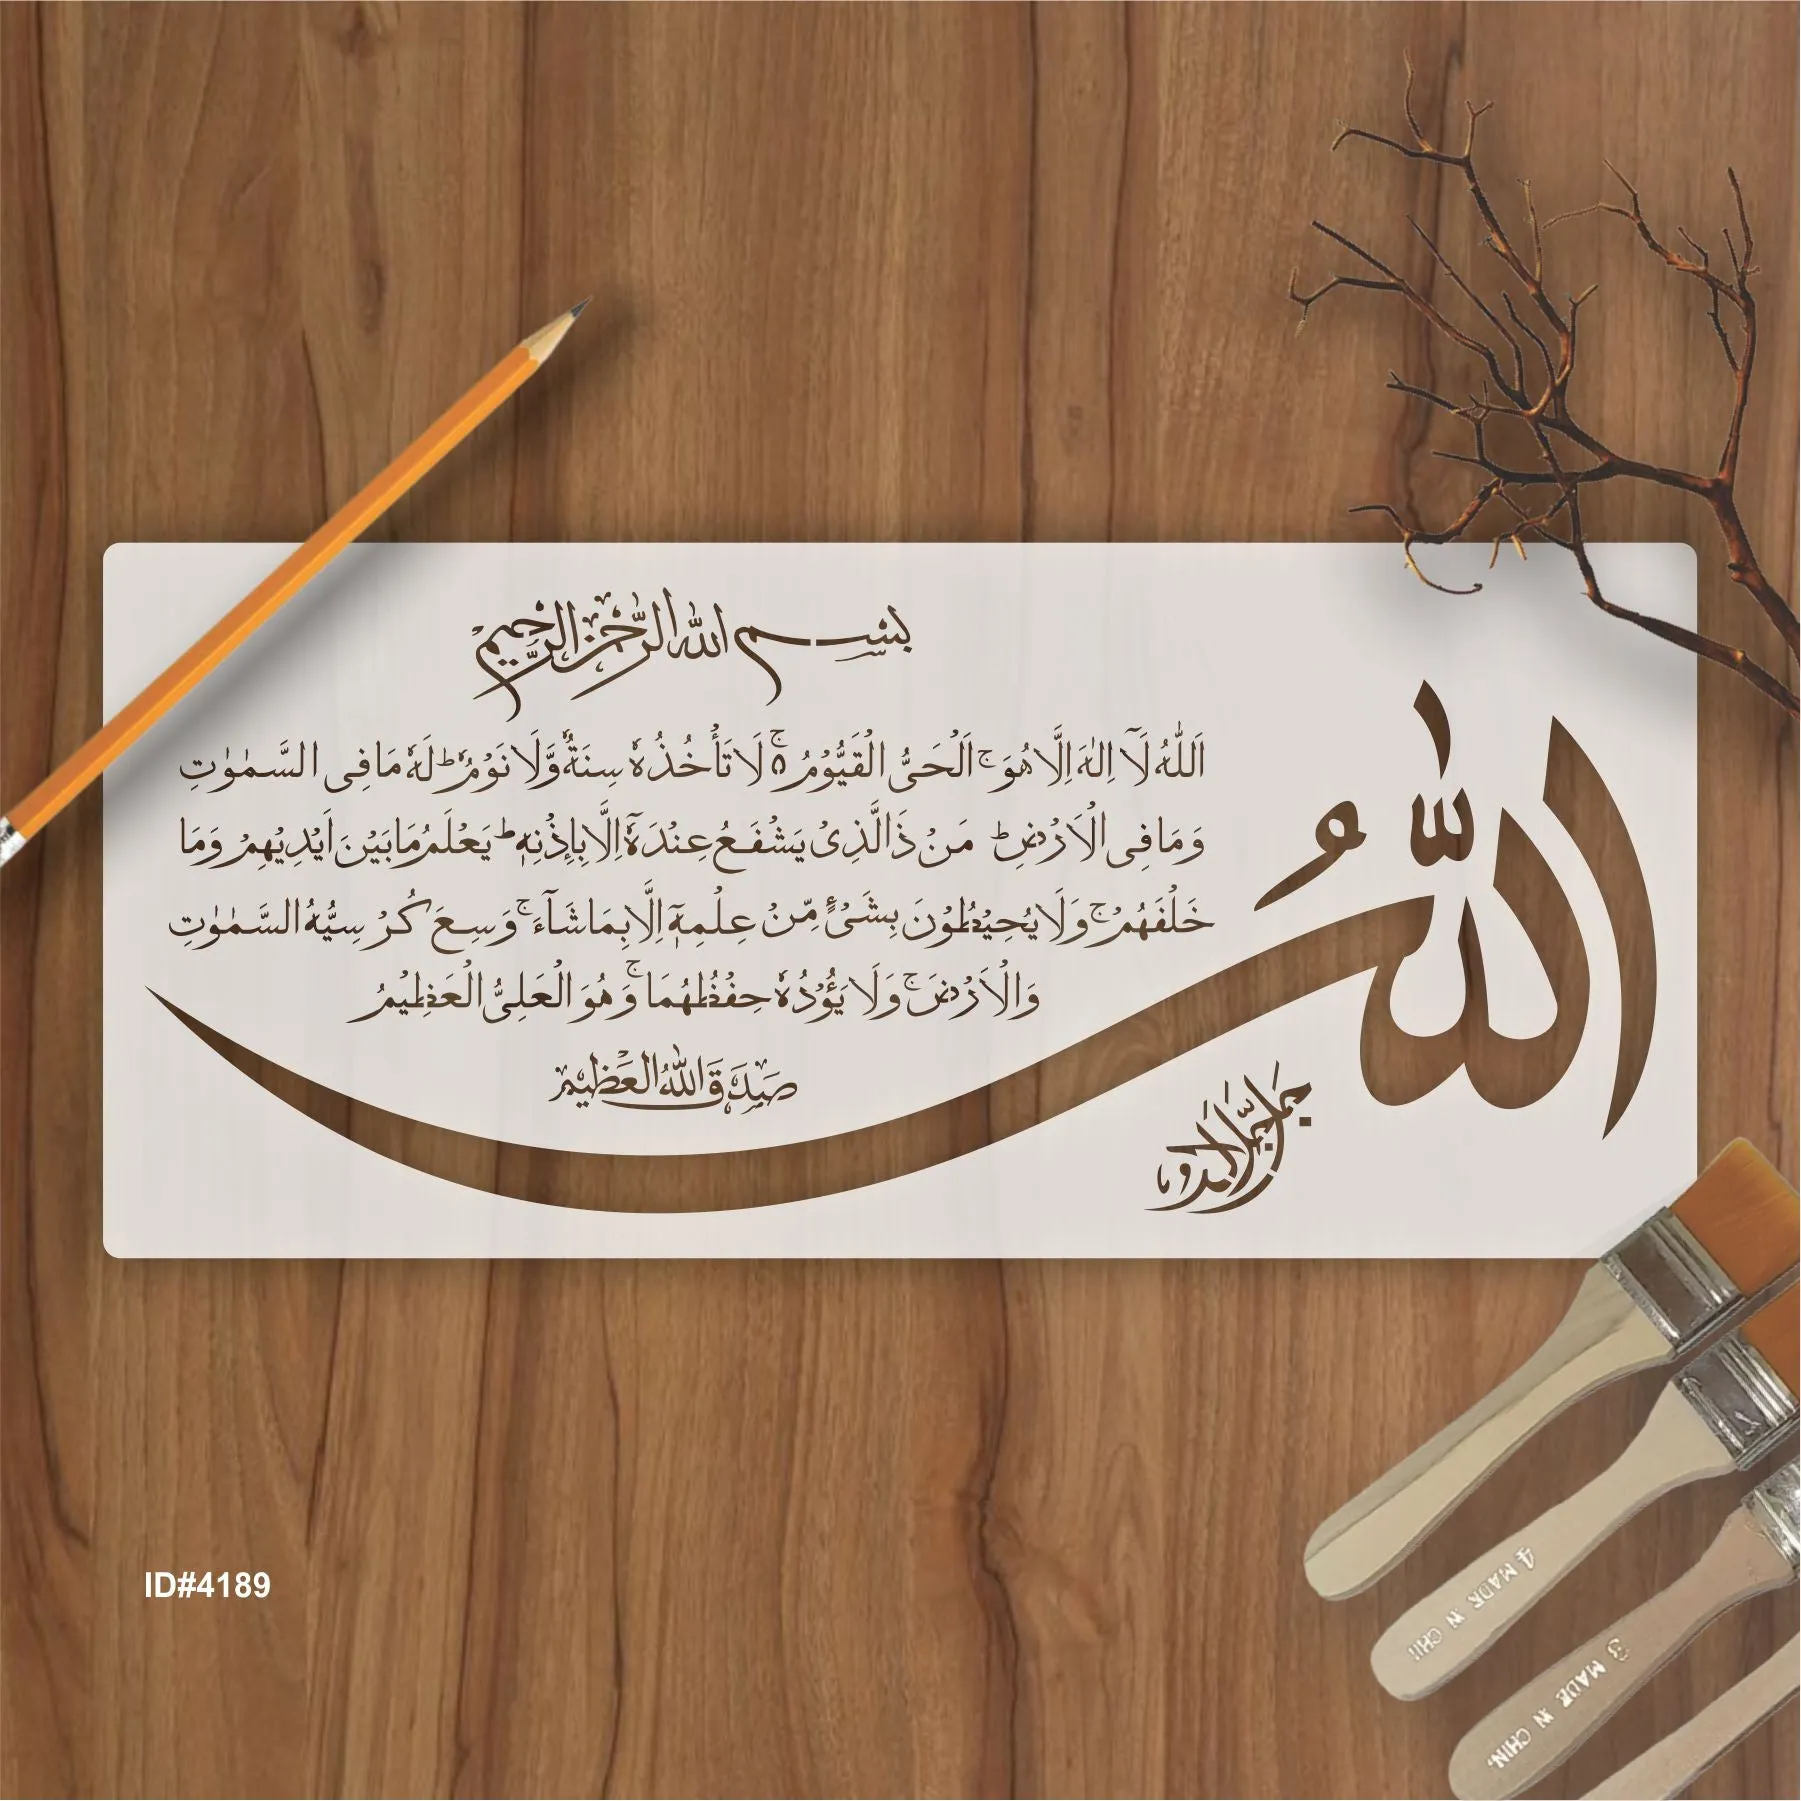 بسم الله الرحمن الرحيم
اَللّٰهُ لَآ اِلٰهَ اِلَّا هُوَ ۚ اَلْحَیُّ الْقَیُّوْمُ ۚ۬ لَا تَاْخُذُهٗ سِنَةٌ وَّلَا نَوْمٌ ؕ لَهٗ مَا فِی السَّمٰوٰتِ
وَمَا فِی الْاَرْضِ ؕ مَنْ ذَا الَّذِیْ یَشْفَعُ عِنْدَهٗۤ اِلَّا بِاِذْنِهٖ ؕ یَعْلَمُ مَا بَیْنَ اَیْدِیْهِمْ وَمَا
خَلْفَهُمْ ۚ وَلَا یُحِیْطُوْنَ بِشَیْءٍ مِّنْ عِلْمِهٖۤ اِلَّا بِمَا شَآءَ ۚ وَسِعَ كُرْسِیُّهُ السَّمٰوٰتِ
وَالْاَرْضَ ۚ وَلَا یَـُٔوْدُهٗ حِفْظُهُمَا ۚ وَهُوَ الْعَلِیُّ الْعَظِیْمُ
صَدَقَ اللّٰهُ الْعَظِیْم
اللّٰهُ
ID#4189
4 MADE IN CHI
3 MADE IN CHIN